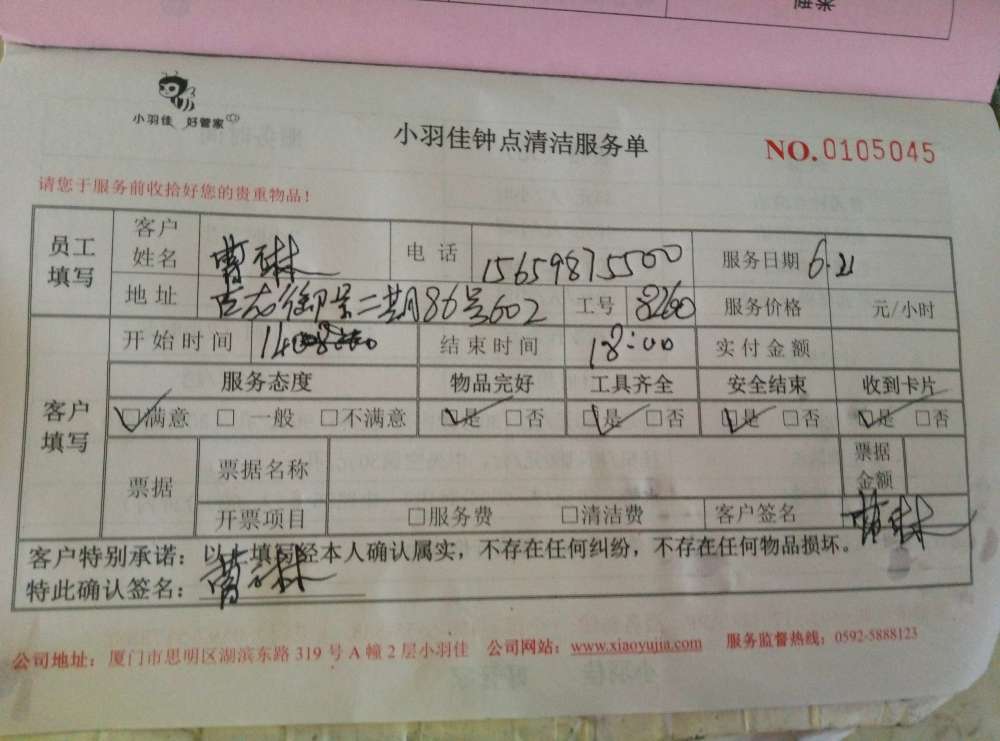 小羽佳 好管家
小羽佳钟点清洁服务单
NO.0105045
请您于服务前收拾好您的贵重物品！
员工填写 客户姓名 曹 电话 15659875500 服务日期 6.21
地址 御景二期86号602 工号 8260 服务价格 元/小时
开始时间 14 结束时间 18:00 实付金额
客户填写 服务态度 物品完好 工具齐全 安全结束 收到卡片
☑满意 □一般 □不满意 ☑是 □否 ☑是 □否 ☑是 □否 ☑是 □否
票据 票据名称 票据金额
开票项目 □服务费 □清洁费 客户签名
客户特别承诺：以上填写经本人确认属实，不存在任何纠纷，不存在任何物品损坏。
特此确认签名：
公司地址：厦门市思明区湖滨东路 319 号 A 幢 2 层小羽佳 公司网站：www.xiaoyujia.com 服务监督热线：0592-5888123